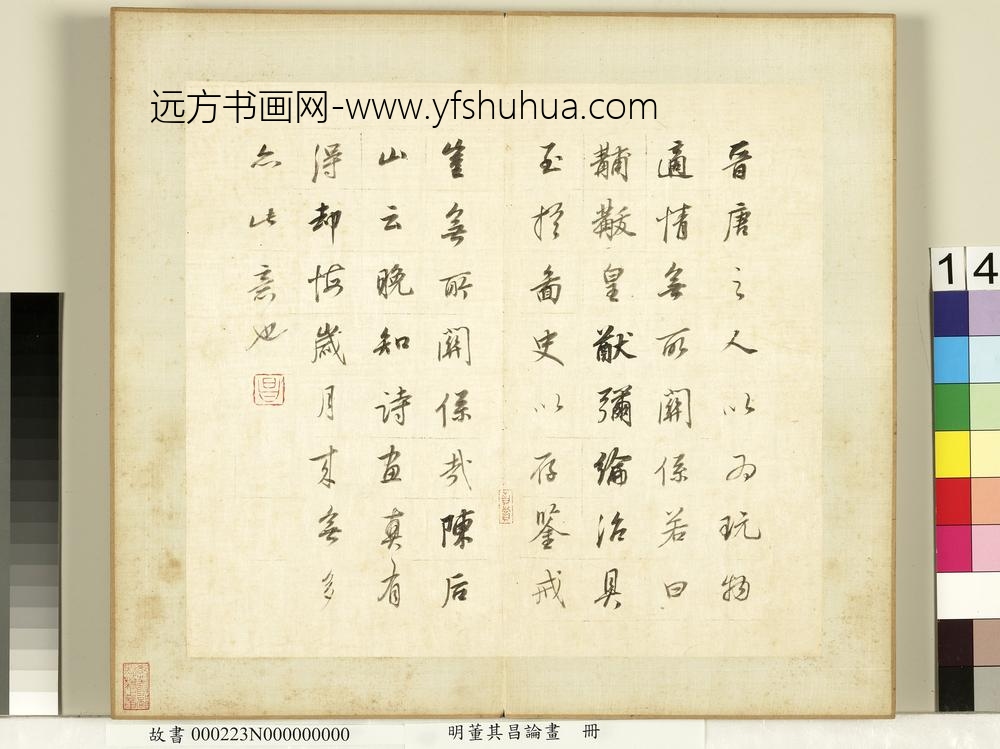 远方书画网-www.yfshuhua.com
晉唐之人以為玩物
適情無所關係若曰
黼黻皇猷彌綸治具
至於圖史以存鑒戒
豈無所關係哉陳后
山云晚知詩畫真有
得却悔歲月來無多
亦此意也
14
故書 000223N000000000
明董其昌論畫 冊